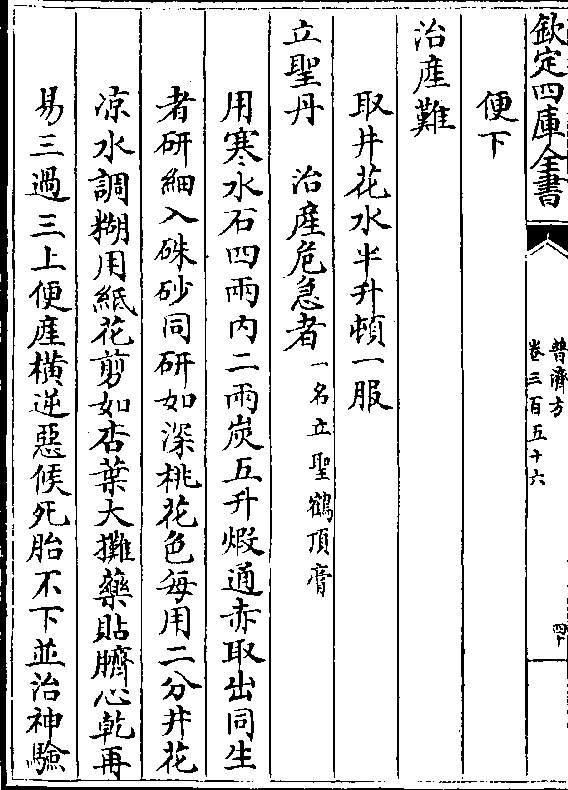 欽定四庫全書
普濟方
卷三百五十六
便下
治産難
取井花水半升頓一服
立聖丹 治産危急者一名立聖鶴頂膏
用寒水石四兩内二兩炭五升煅通赤取出同生
者研細入硃砂同研如深桃花色每用二分井花
凉水調糊用紙花剪如杏葉大攤藥貼臍心乾再
易三過三上便産橫逆惡候死胎不下並治神驗